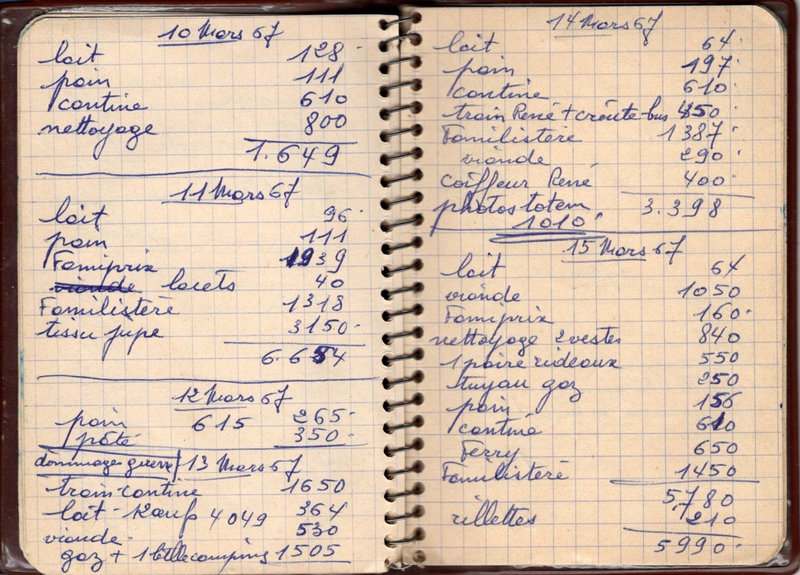 10 Mars 67
lait 128
pain 111
cantine 610
nettoyage 800
1.649
11 Mars 67
lait 96
pain 111
Famiprix 1939
viande lacets 40
Familistère 1318
tissu jupe 3150
6.654
12 Mars 67
pain 615 265
pâté 350
dommage guerre 13 Mars 67
train cantine 1650
lait - Kœuf 4049 364
viande 530
gaz + 1 btlle camping 1505
14 Mars 67
lait 64
pain 197
cantine 610
train René + croûte bus 450
Familistère 1387
viande 290
coiffeur René 400
photos totem 3.398
1010
15 Mars 67
lait 64
viande 1050
Famiprix 160
nettoyage 2 vestes 840
1 paire rideaux 550
tuyau gaz 250
pain 156
cantine 610
Ferry 650
Familistère 1450
5780
rillettes 210
5990